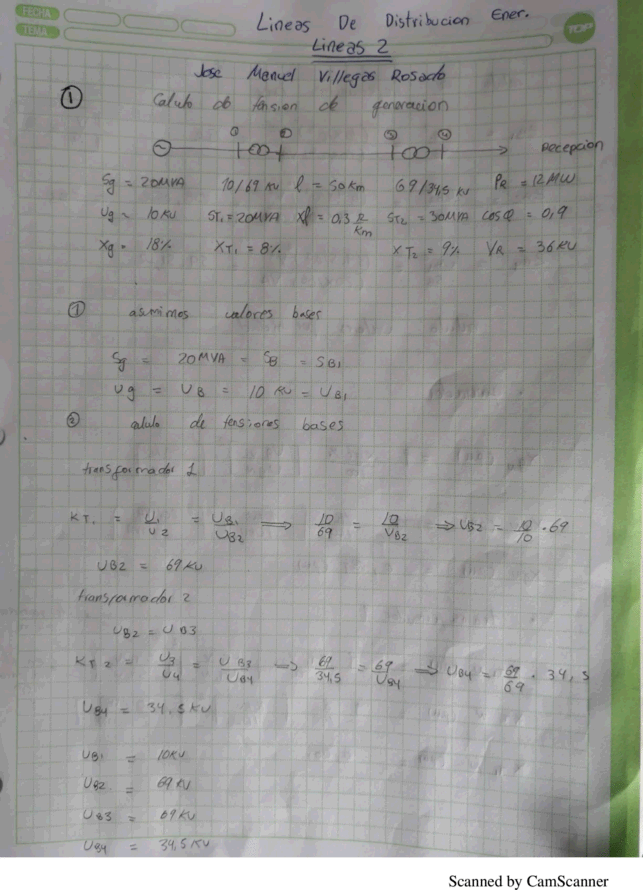 FECHA
TEMA
TOP
Lineas De Distribucion Ener.
Lineas 2
Jose Manuel Villegas Rosado
① Calculo de tension de generacion
① ② ③ ④
Recepcion
Sg = 20MVA 10/69 KV l = 50Km 69/34,5 KV PR = 12MW
Ug = 10KV ST1 = 20MVA Xl = 0,3 Ω/Km ST2 = 30MVA cosφ = 0,9
Xg = 18% XT1 = 8% XT2 = 9% VR = 36KV
① asumimos valores bases
Sg = 20MVA = SB = SB1
Ug = UB = 10 KV = UB1
② calculo de tensiones bases
transformador 1
KT1 = U1/U2 = UB1/UB2 ⟹ 10/69 = 10/UB2 ⟹ UB2 = 10/10 . 69
UB2 = 69KV
transformador 2
UB2 = UB3
KT2 = U3/U4 = UB3/UB4 ⟹ 69/34,5 = 69/UB4 ⟹ UB4 = 69/69 . 34,5
UB4 = 34,5KV
UB1 = 10KV
UB2 = 69KV
UB3 = 69KV
UB4 = 34,5KV
Scanned by CamScanner